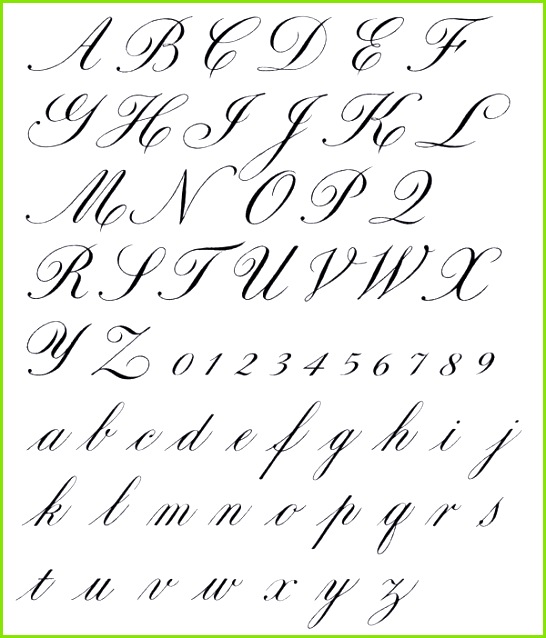 A B C D E F
G H I J K L
M N O P Q
R S T U V W X
Y Z 0 1 2 3 4 5 6 7 8 9
a b c d e f g h i j
k l m n o p q r s
t u v w x y z